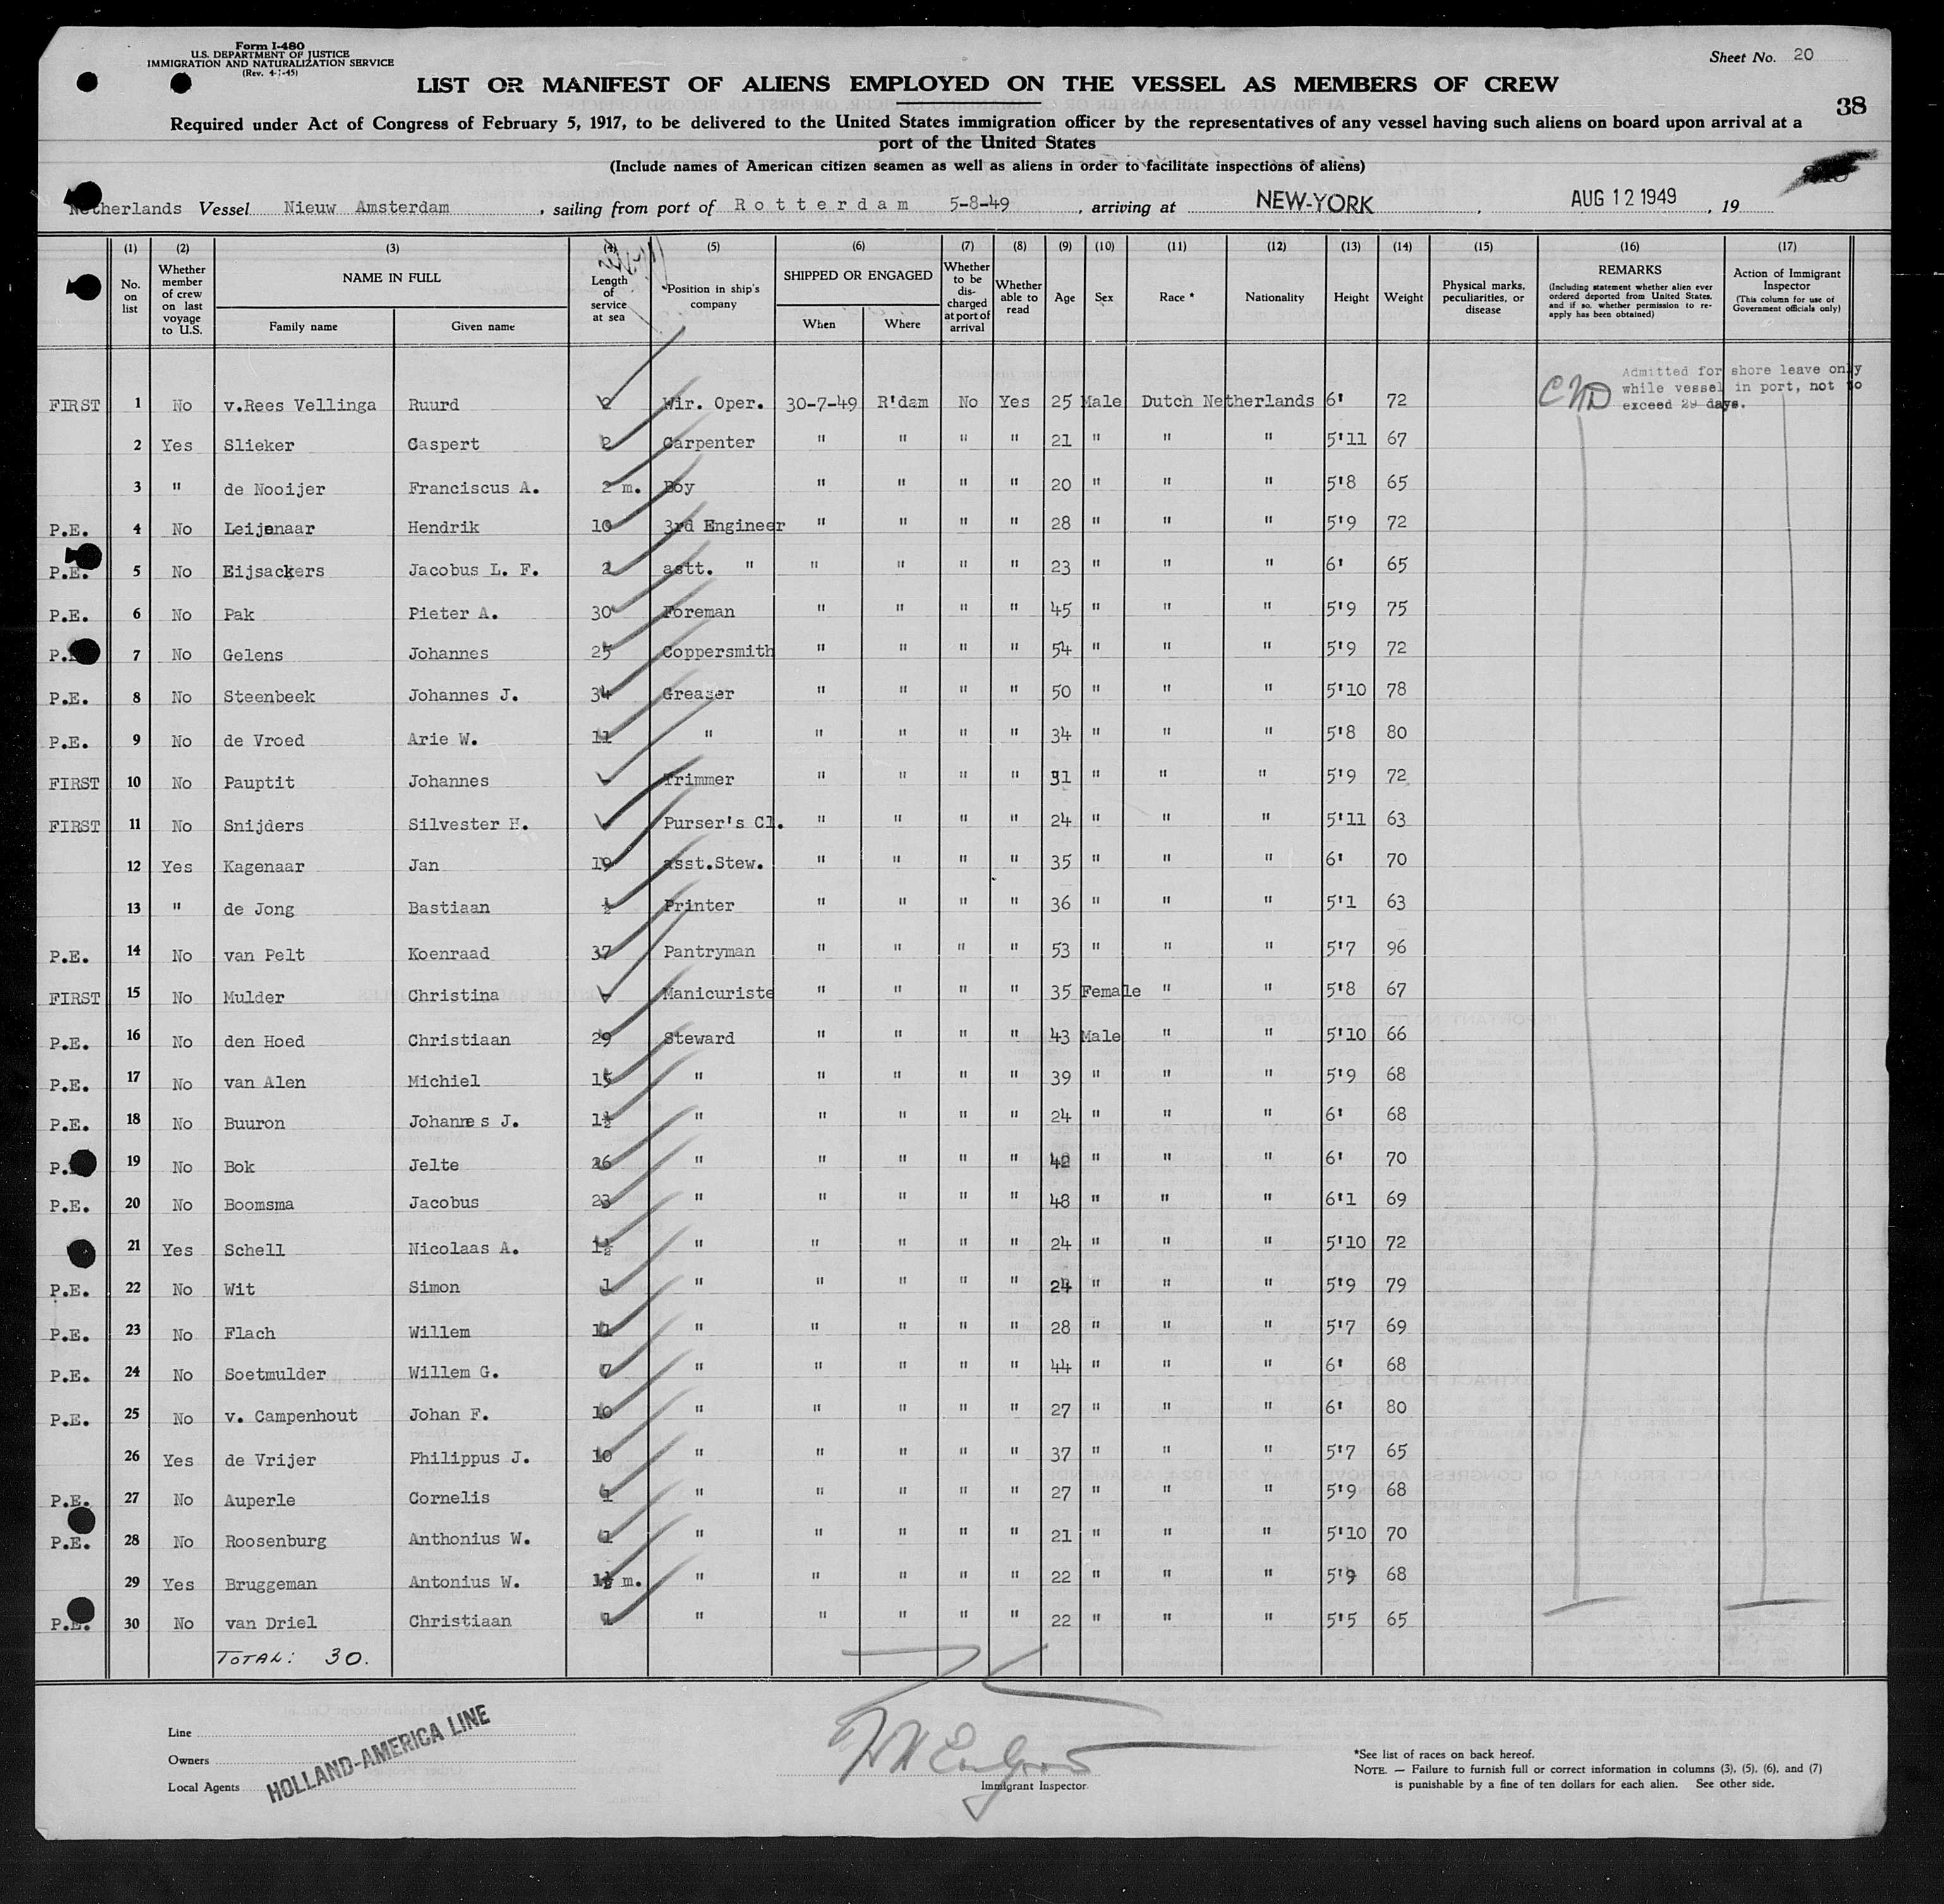 Form I-480
U.S. DEPARTMENT OF JUSTICE
IMMIGRATION AND NATURALIZATION SERVICE
(Rev. 4-1-45)
Sheet No. 20
LIST OR MANIFEST OF ALIENS EMPLOYED ON THE VESSEL AS MEMBERS OF CREW
38
Required under Act of Congress of February 5, 1917, to be delivered to the United States immigration officer by the representatives of any vessel having such aliens on board upon arrival at a
port of the United States
(Include names of American citizen seamen as well as aliens in order to facilitate inspections of aliens)
Netherlands Vessel Nieuw Amsterdam , sailing from port of Rotterdam 5-8-49 , arriving at NEW-YORK , AUG 12 1949 , 19
(1) (2) (3) (4) (5) (6) (7) (8) (9) (10) (11) (12) (13) (14) (15) (16) (17)
No. on list
Whether member of crew on last voyage to U.S.
NAME IN FULL
Family name Given name
Length of service at sea
Position in ship's company
SHIPPED OR ENGAGED
When Where
Whether to be discharged at port of arrival
Whether able to read
Age Sex Race * Nationality Height Weight
Physical marks, peculiarities, or disease
REMARKS
(Including statement whether alien ever ordered deported from United States, and if so, whether permission to re-apply has been obtained)
Action of Immigrant Inspector
(This column for use of Government officials only)
Admitted for shore leave only
while vessel in port, not to
exceed 29 days.
FIRST 1 No v.Rees Vellinga Ruurd 2 Wir. Oper. 30-7-49 R'dam No Yes 25 Male Dutch Netherlands 6' 72
2 Yes Slieker Caspert 2 Carpenter " " " " 21 " " " 5'11 67
3 " de Nooijer Franciscus A. 2 m. Boy " " " " 20 " " " 5'8 65
P.E. 4 No Leijenaar Hendrik 10 3rd Engineer " " " " 28 " " " 5'9 72
P.E. 5 No Eijsackers Jacobus L. F. 2 astt. " " " " " 23 " " " 6' 65
P.E. 6 No Pak Pieter A. 30 Foreman " " " " 45 " " " 5'9 75
P.E. 7 No Gelens Johannes 25 Coppersmith " " " " 54 " " " 5'9 72
P.E. 8 No Steenbeek Johannes J. 34 Greaser " " " " 50 " " " 5'10 78
P.E. 9 No de Vroed Arie W. 11 " " " " " 34 " " " 5'8 80
FIRST 10 No Pauptit Johannes - Trimmer " " " " 31 " " " 5'9 72
FIRST 11 No Snijders Silvester H. - Purser's Cl. " " " " 24 " " " 5'11 63
12 Yes Kagenaar Jan 19 asst.Stew. " " " " 35 " " " 6' 70
13 " de Jong Bastiaan ½ Printer " " " " 36 " " " 5'1 63
P.E. 14 No van Pelt Koenraad 37 Pantryman " " " " 53 " " " 5'7 96
FIRST 15 No Mulder Christina - Manicuriste " " " " 35 Female " " 5'8 67
P.E. 16 No den Hoed Christiaan 29 Steward " " " " 43 Male " " 5'10 66
P.E. 17 No van Alen Michiel 15 " " " " " 39 " " " 5'9 68
P.E. 18 No Buuron Johannes J. 1½ " " " " " 24 " " " 6' 68
P.E. 19 No Bok Jelte 26 " " " " " 42 " " " 6' 70
P.E. 20 No Boomsma Jacobus 23 " " " " " 48 " " " 6'1 69
21 Yes Schell Nicolaas A. 1½ " " " " " 24 " " " 5'10 72
P.E. 22 No Wit Simon 1 " " " " " 24 " " " 5'9 79
P.E. 23 No Flach Willem 11 " " " " " 28 " " " 5'7 69
P.E. 24 No Soetmulder Willem G. 7 " " " " " 44 " " " 6' 68
P.E. 25 No v. Campenhout Johan F. 10 " " " " " 27 " " " 6' 80
26 Yes de Vrijer Philippus J. 10 " " " " " 37 " " " 5'7 65
P.E. 27 No Auperle Cornelis 1 " " " " " 27 " " " 5'9 68
P.E. 28 No Roosenburg Anthonius W. 1 " " " " " 21 " " " 5'10 70
29 Yes Bruggeman Antonius W. 1½ m. " " " " " 22 " " " 5'9 68
P.E. 30 No van Driel Christiaan 1 " " " " " 22 " " " 5'5 65
TOTAL: 30.
Line
Owners
Local Agents
HOLLAND-AMERICA LINE
Immigrant Inspector
*See list of races on back hereof.
NOTE. — Failure to furnish full or correct information in columns (3), (5), (6), and (7)
is punishable by a fine of ten dollars for each alien. See other side.